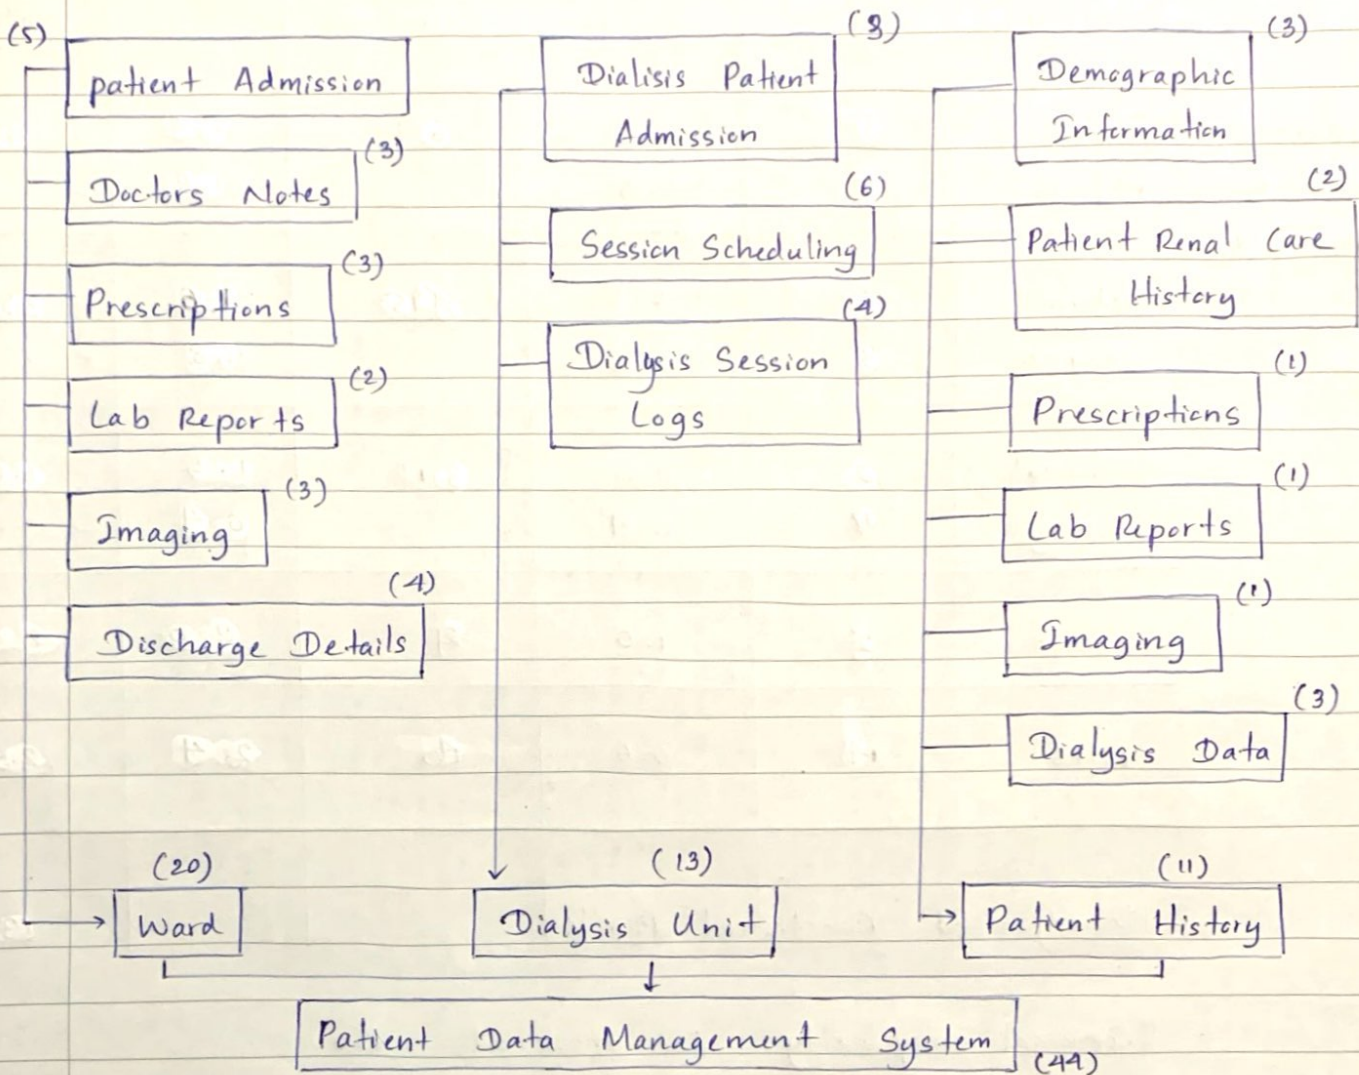 (5)
patient Admission
(3)
Doctors Notes
(3)
Prescriptions
(2)
Lab Reports
(3)
Imaging
(4)
Discharge Details
(20)
Ward
(3)
Dialisis Patient
Admission
(6)
Session Scheduling
(4)
Dialysis Session
Logs
(13)
Dialysis Unit
(3)
Demographic
Information
(2)
Patient Renal Care
History
(1)
Prescriptions
(1)
Lab Reports
(1)
Imaging
(3)
Dialysis Data
(11)
Patient History
Patient Data Management System
(44)